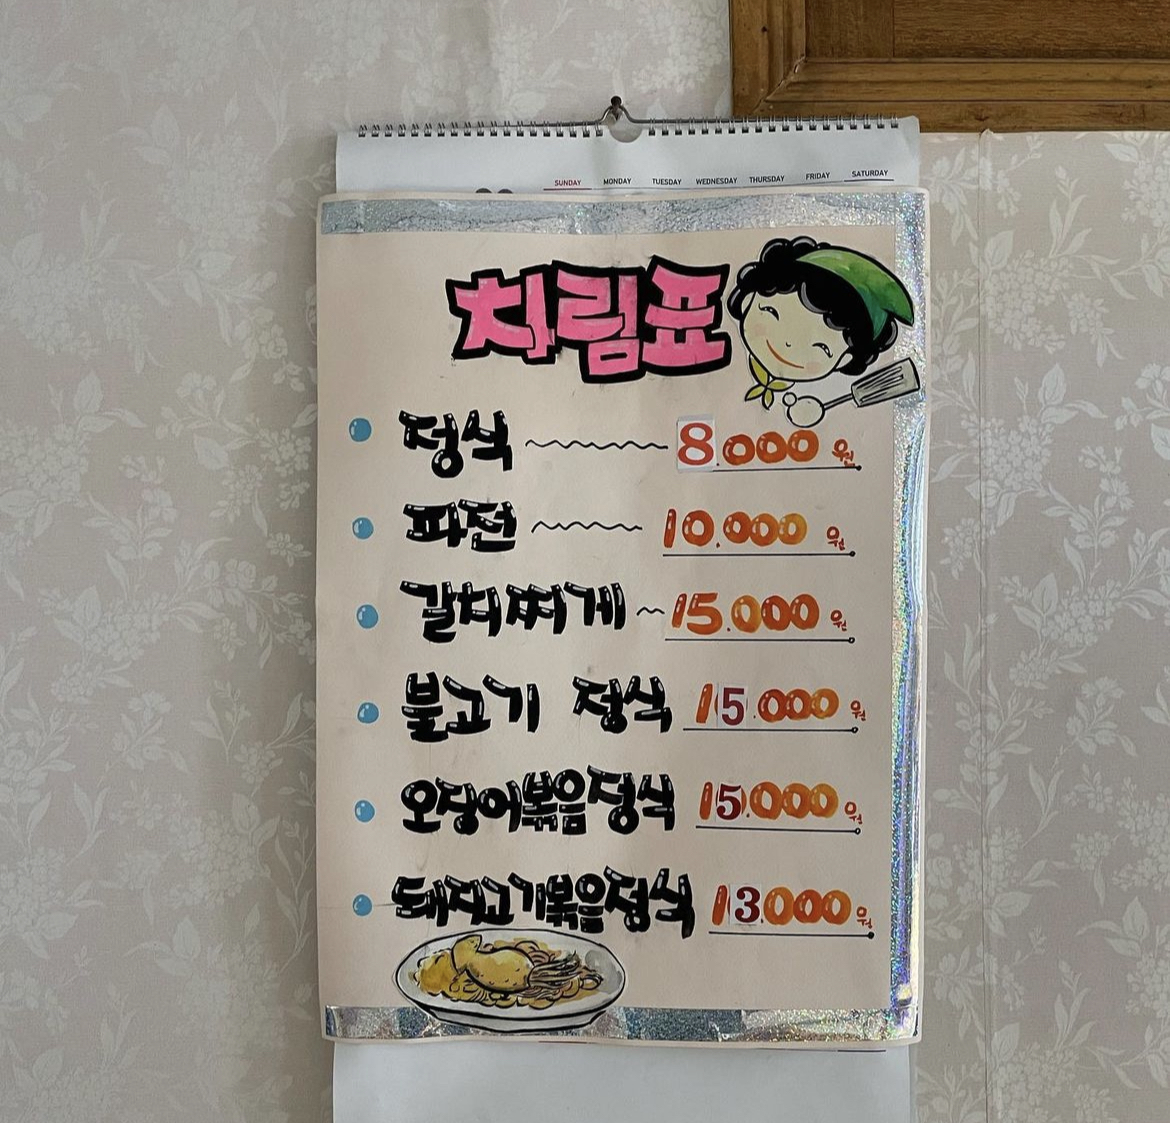 SUNDAY MONDAY TUESDAY WEDNESDAY THURSDAY FRIDAY SATURDAY
차림표
정식 8.000원
파전 10.000원
갈치찌게 15.000원
불고기 정식 15.000원
오징어볶음정식 15.000원
돼지고기볶음정식 13.000원